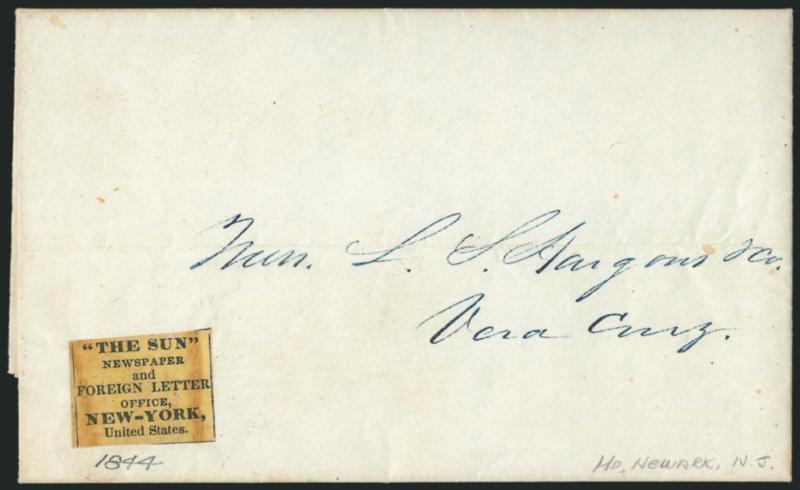 Messrs. L. S. Hargous & Co.
Vera Cruz.
"THE SUN"
NEWSPAPER
and
FOREIGN LETTER
OFFICE,
NEW-YORK,
United States.
1844
HD, NEWARK, N.J.